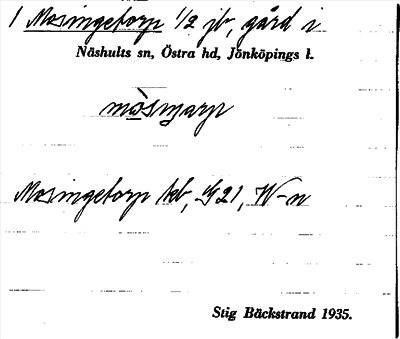 1 Mosingetorp 1/2 jb, gård i
Näshults sn, Östra hd, Jönköpings l.
Mosingetorp kb, G21, W-n
Stig Bäckstrand 1935.